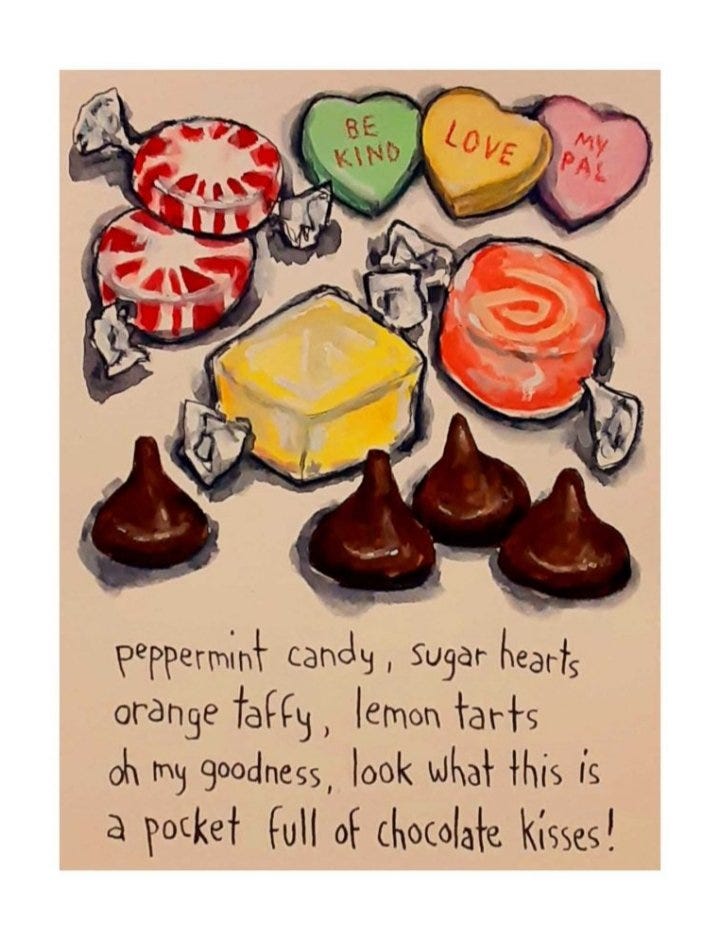 BE
KIND
LOVE
MY
PAL
peppermint candy, sugar hearts
orange taffy, lemon tarts
oh my goodness, look what this is
a pocket full of chocolate kisses!